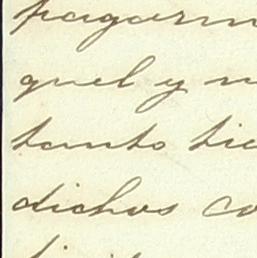 pagarm
quel y n
tanto tie
dichos co